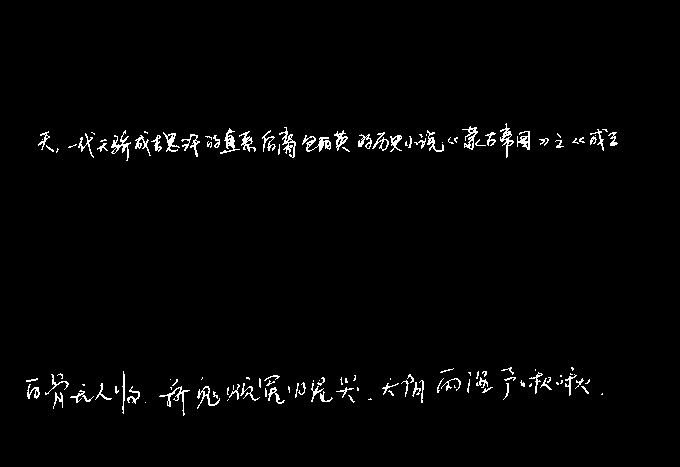 天,一代天骄成吉思汗的直系后裔包丽英的历史小说《蒙古帝国》之《成吉
白骨无人收.新鬼烦冤旧鬼哭.天阴雨湿声啾啾.